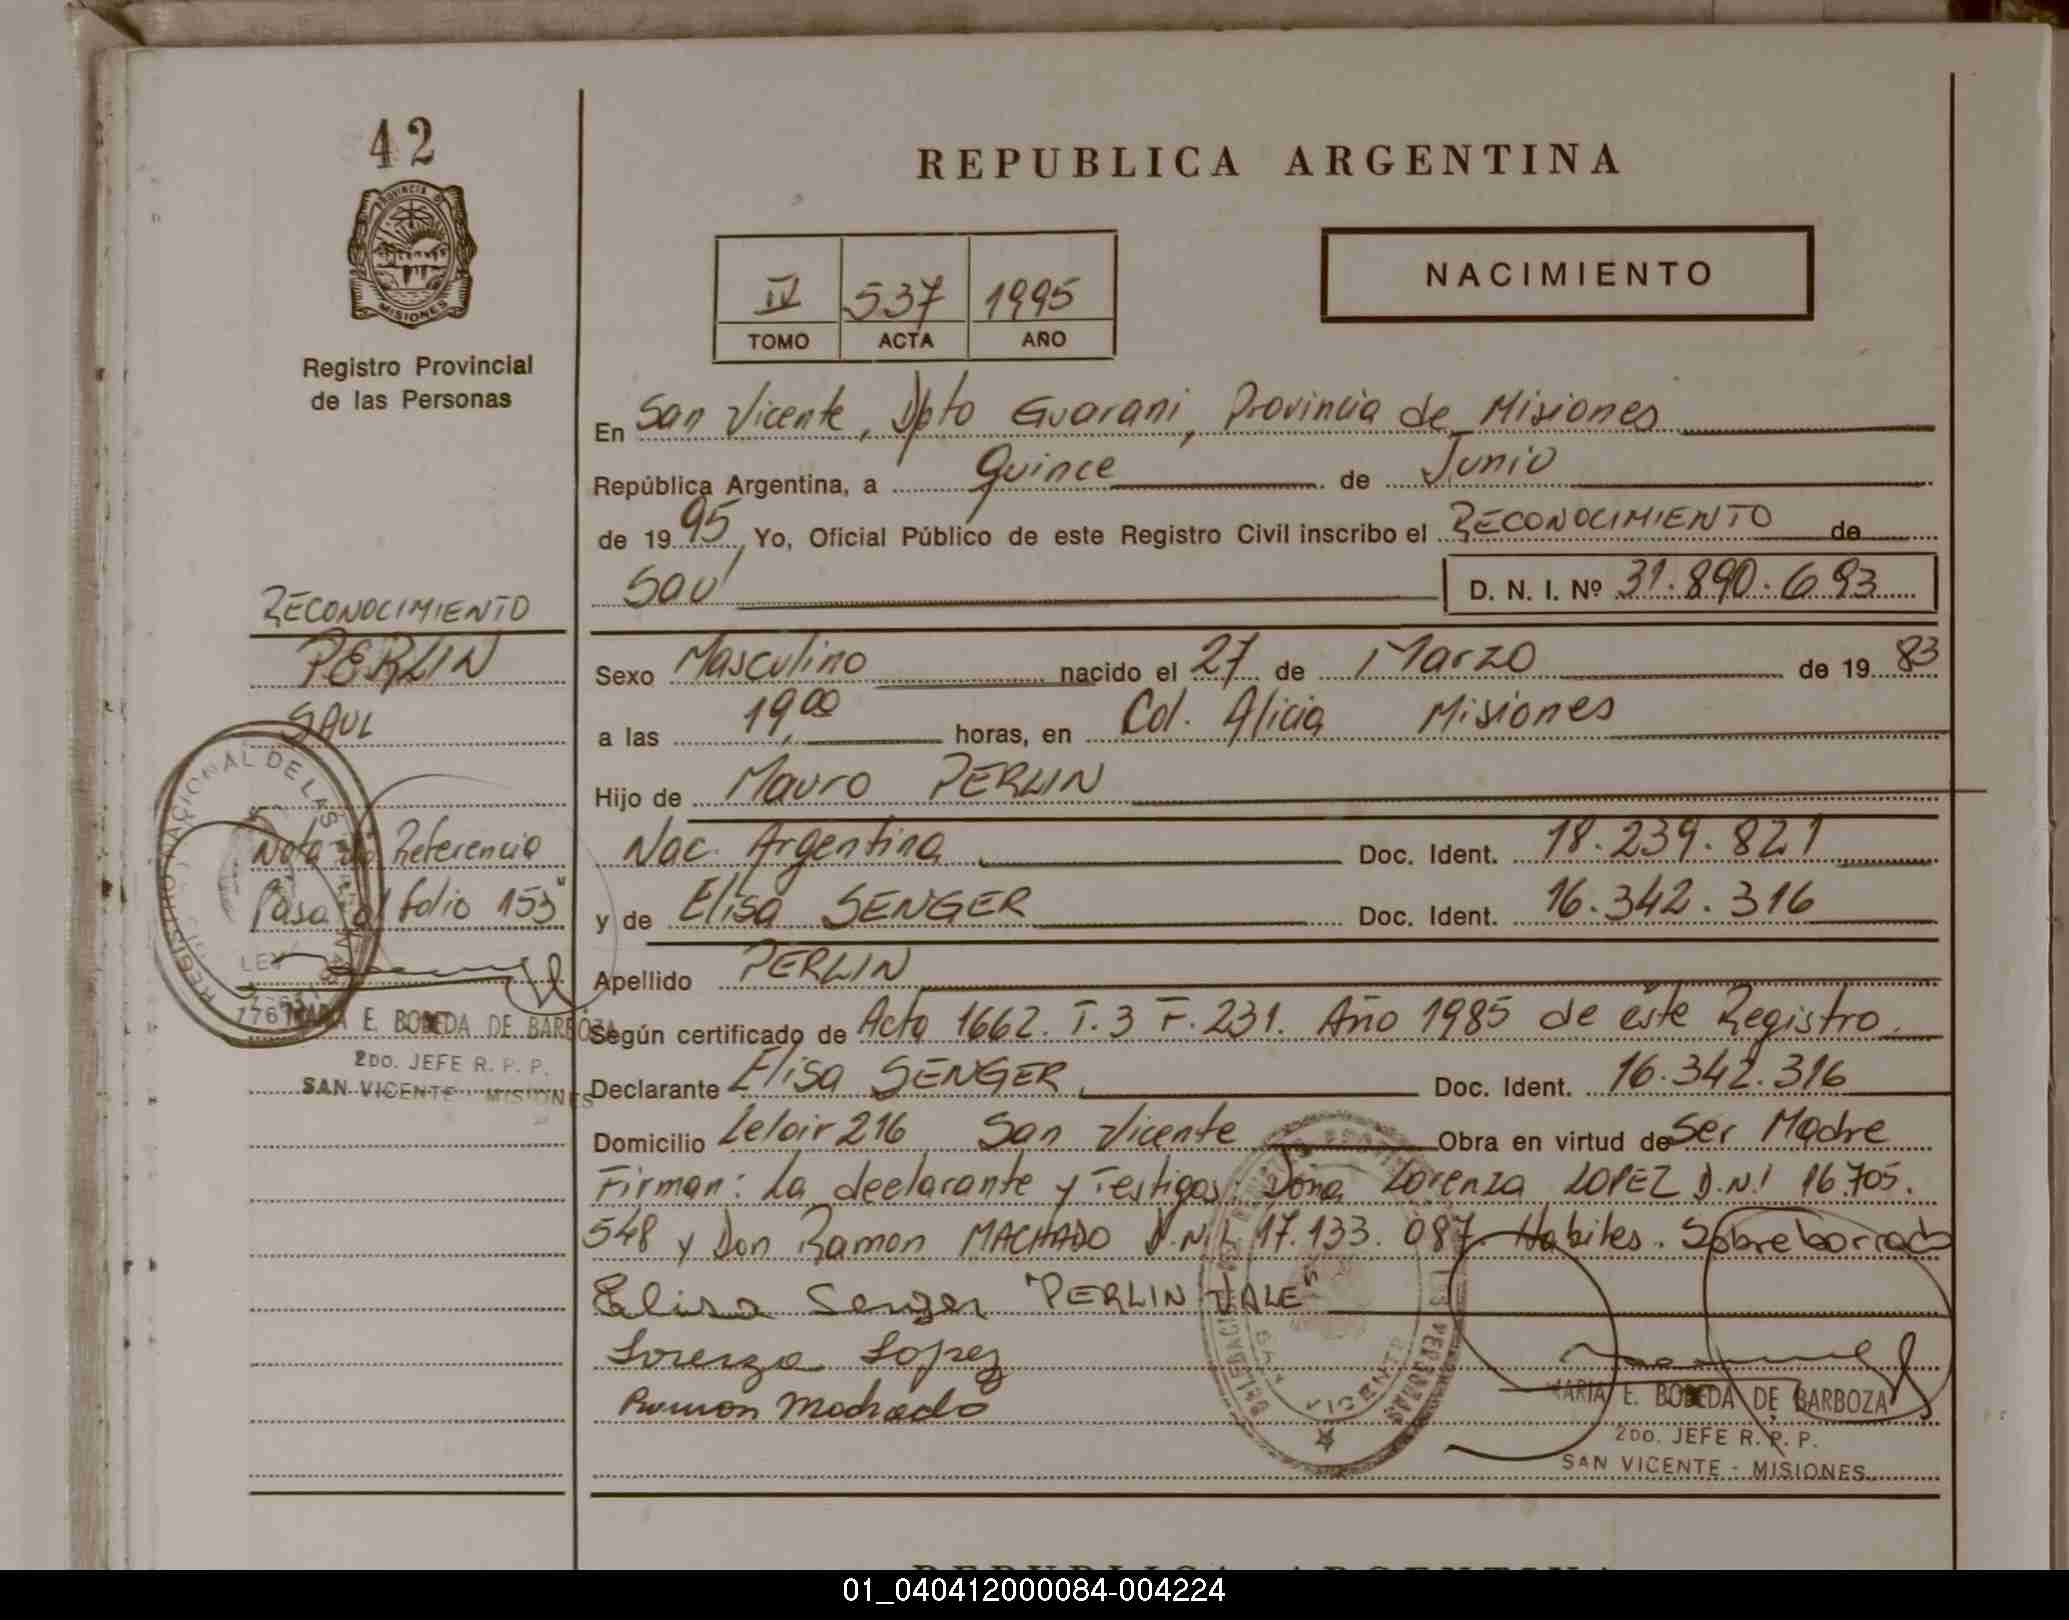 42
PROVINCIA DE
MISIONES
Registro Provincial
de las Personas
REPUBLICA ARGENTINA
IV 537 1995
TOMO ACTA AÑO
NACIMIENTO
En San Vicente, Dpto Guarani, Provincia de Misiones
República Argentina, a Quince de Junio
de 1995, Yo, Oficial Público de este Registro Civil inscribo el RECONOCIMIENTO de
Saul
D. N. I. Nº 31.890.693
RECONOCIMIENTO
PERLIN
SAUL
Nota de Referencia
Pasa al folio 153"
REGISTRO NACIONAL DE LAS PERSONAS
LEY
MARIA E. BOBEDA DE BARBOZA
2DO. JEFE R. P. P.
SAN VICENTE - MISIONES
Sexo Masculino nacido el 27 de Marzo de 1983
a las 19,00 horas, en Col. Alicia Misiones
Hijo de Mauro PERLIN
Nac. Argentina Doc. Ident. 18.239.821
y de Elisa SENGER Doc. Ident. 16.342.316
Apellido PERLIN
Según certificado de Acta 1662. T.3 F.231. Año 1985 de éste Registro.
Declarante Elisa SENGER Doc. Ident. 16.342.316
Domicilio Leloir 216 San Vicente Obra en virtud de Ser Madre
Firman: La declarante y Testigos: Doña Lorenza LOPEZ D.N.I 16.705.
548 y Don Ramon MACHADO D.N.I. 17.133.087 Habiles. Sobreborrado
Elisa Senger "PERLIN VALE
Lorenza Lopez
Ramon Machado
SAN VICENTE
MARIA E. BOBEDA DE BARBOZA
2DO. JEFE R. P. P.
SAN VICENTE - MISIONES
REPUBLICA ARGENTINA
01_040412000084-004224